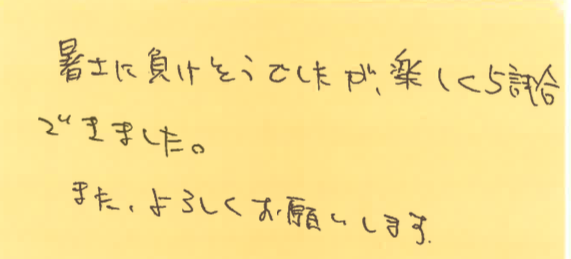 暑さに負けそうでしたが、楽しく5試合
できました。
また、よろしくお願いします。